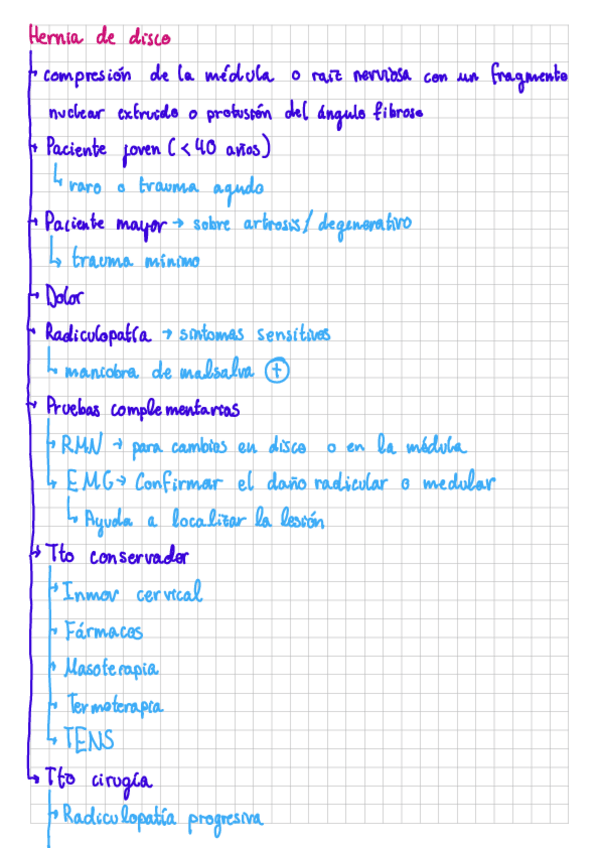 Hernia de disco
compresión de la médula o raíz nerviosa con un fragmento
nuclear extruido o protusión del ángulo fibroso
Paciente joven (<40 años)
raro o trauma agudo
Paciente mayor → sobre artrosis/degenerativo
trauma mínimo
Dolor
Radiculopatía → síntomas sensitivos
maniobra de malsalva +
Pruebas complementarias
RMN → para cambios en disco o en la médula
EMG → Confirmar el daño radicular o medular
Ayuda a localizar la lesión
Tto conservador
Inmov cervical
Fármacos
Masoterapia
Termoterapia
TENS
Tto cirugía
Radiculopatía progresiva